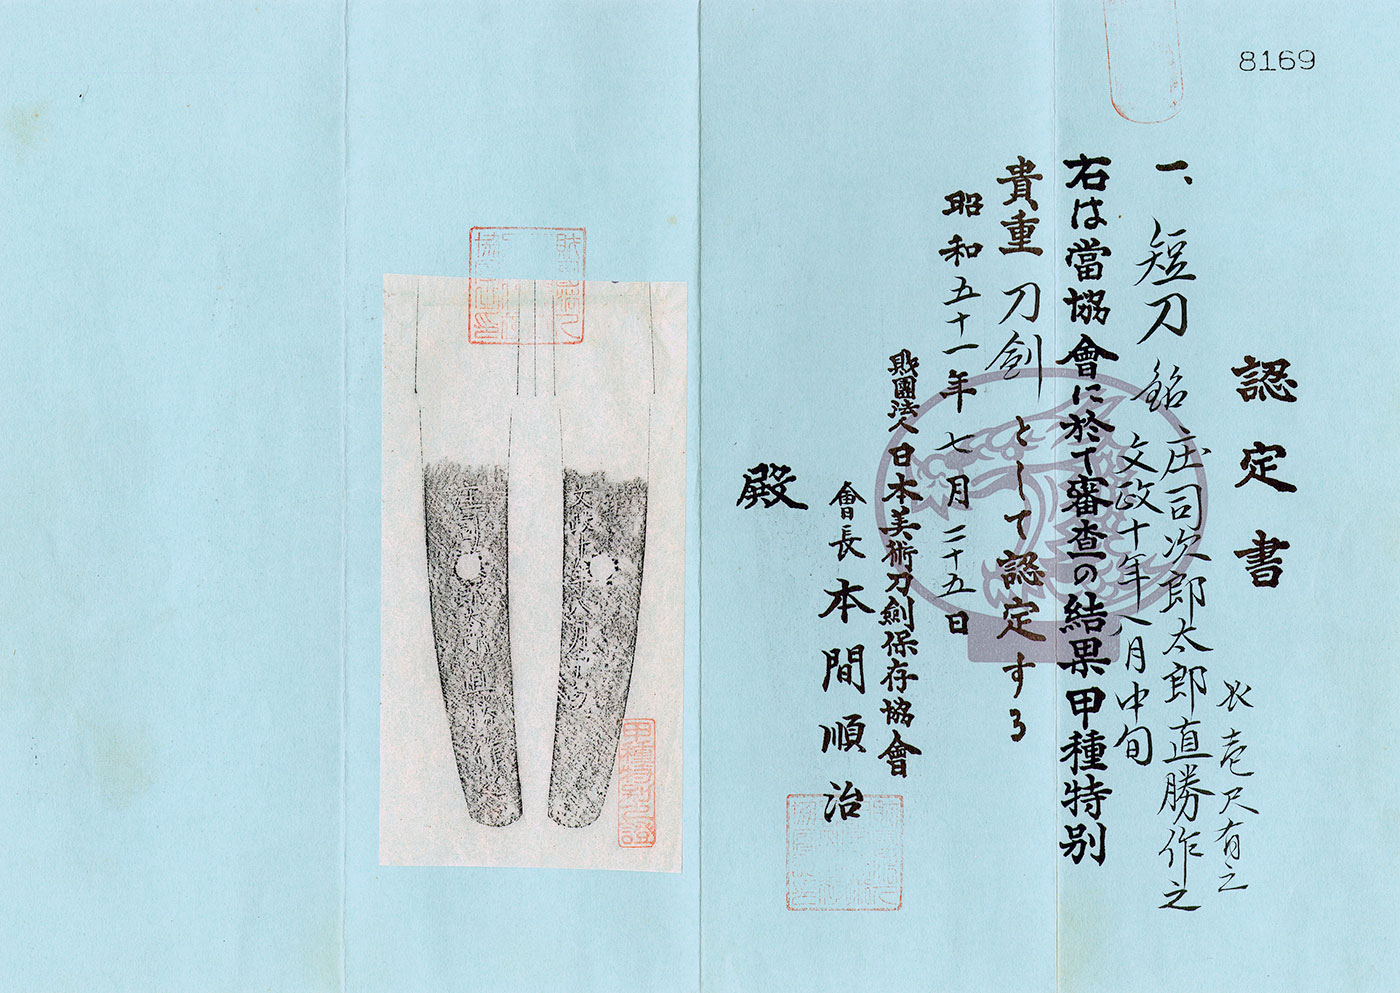 8169
認定書
一、短刀 銘 庄司次郎太郎直勝作之
文政十年八月中旬
長壱尺有之
右は當協會に於て審査の結果甲種特別
貴重刀劍として認定する
昭和五十一年七月二十五日
財團法人日本美術刀劍保存協會
會長 本間順治
殿
甲種特別之證